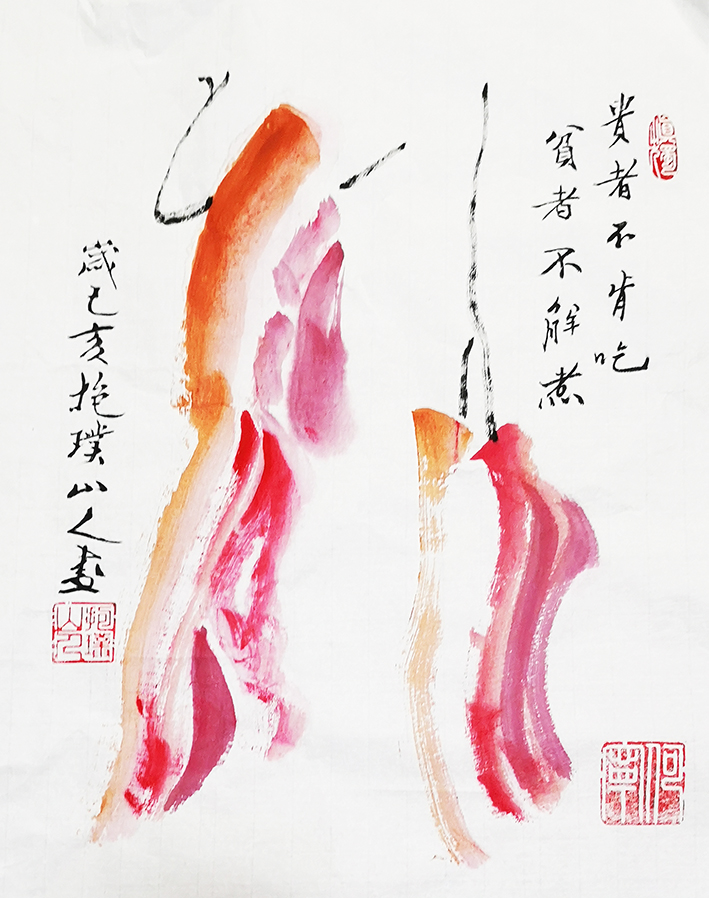 貴者不肯吃
貧者不解煮
歲己亥抱璞山人畫
抱璞山人